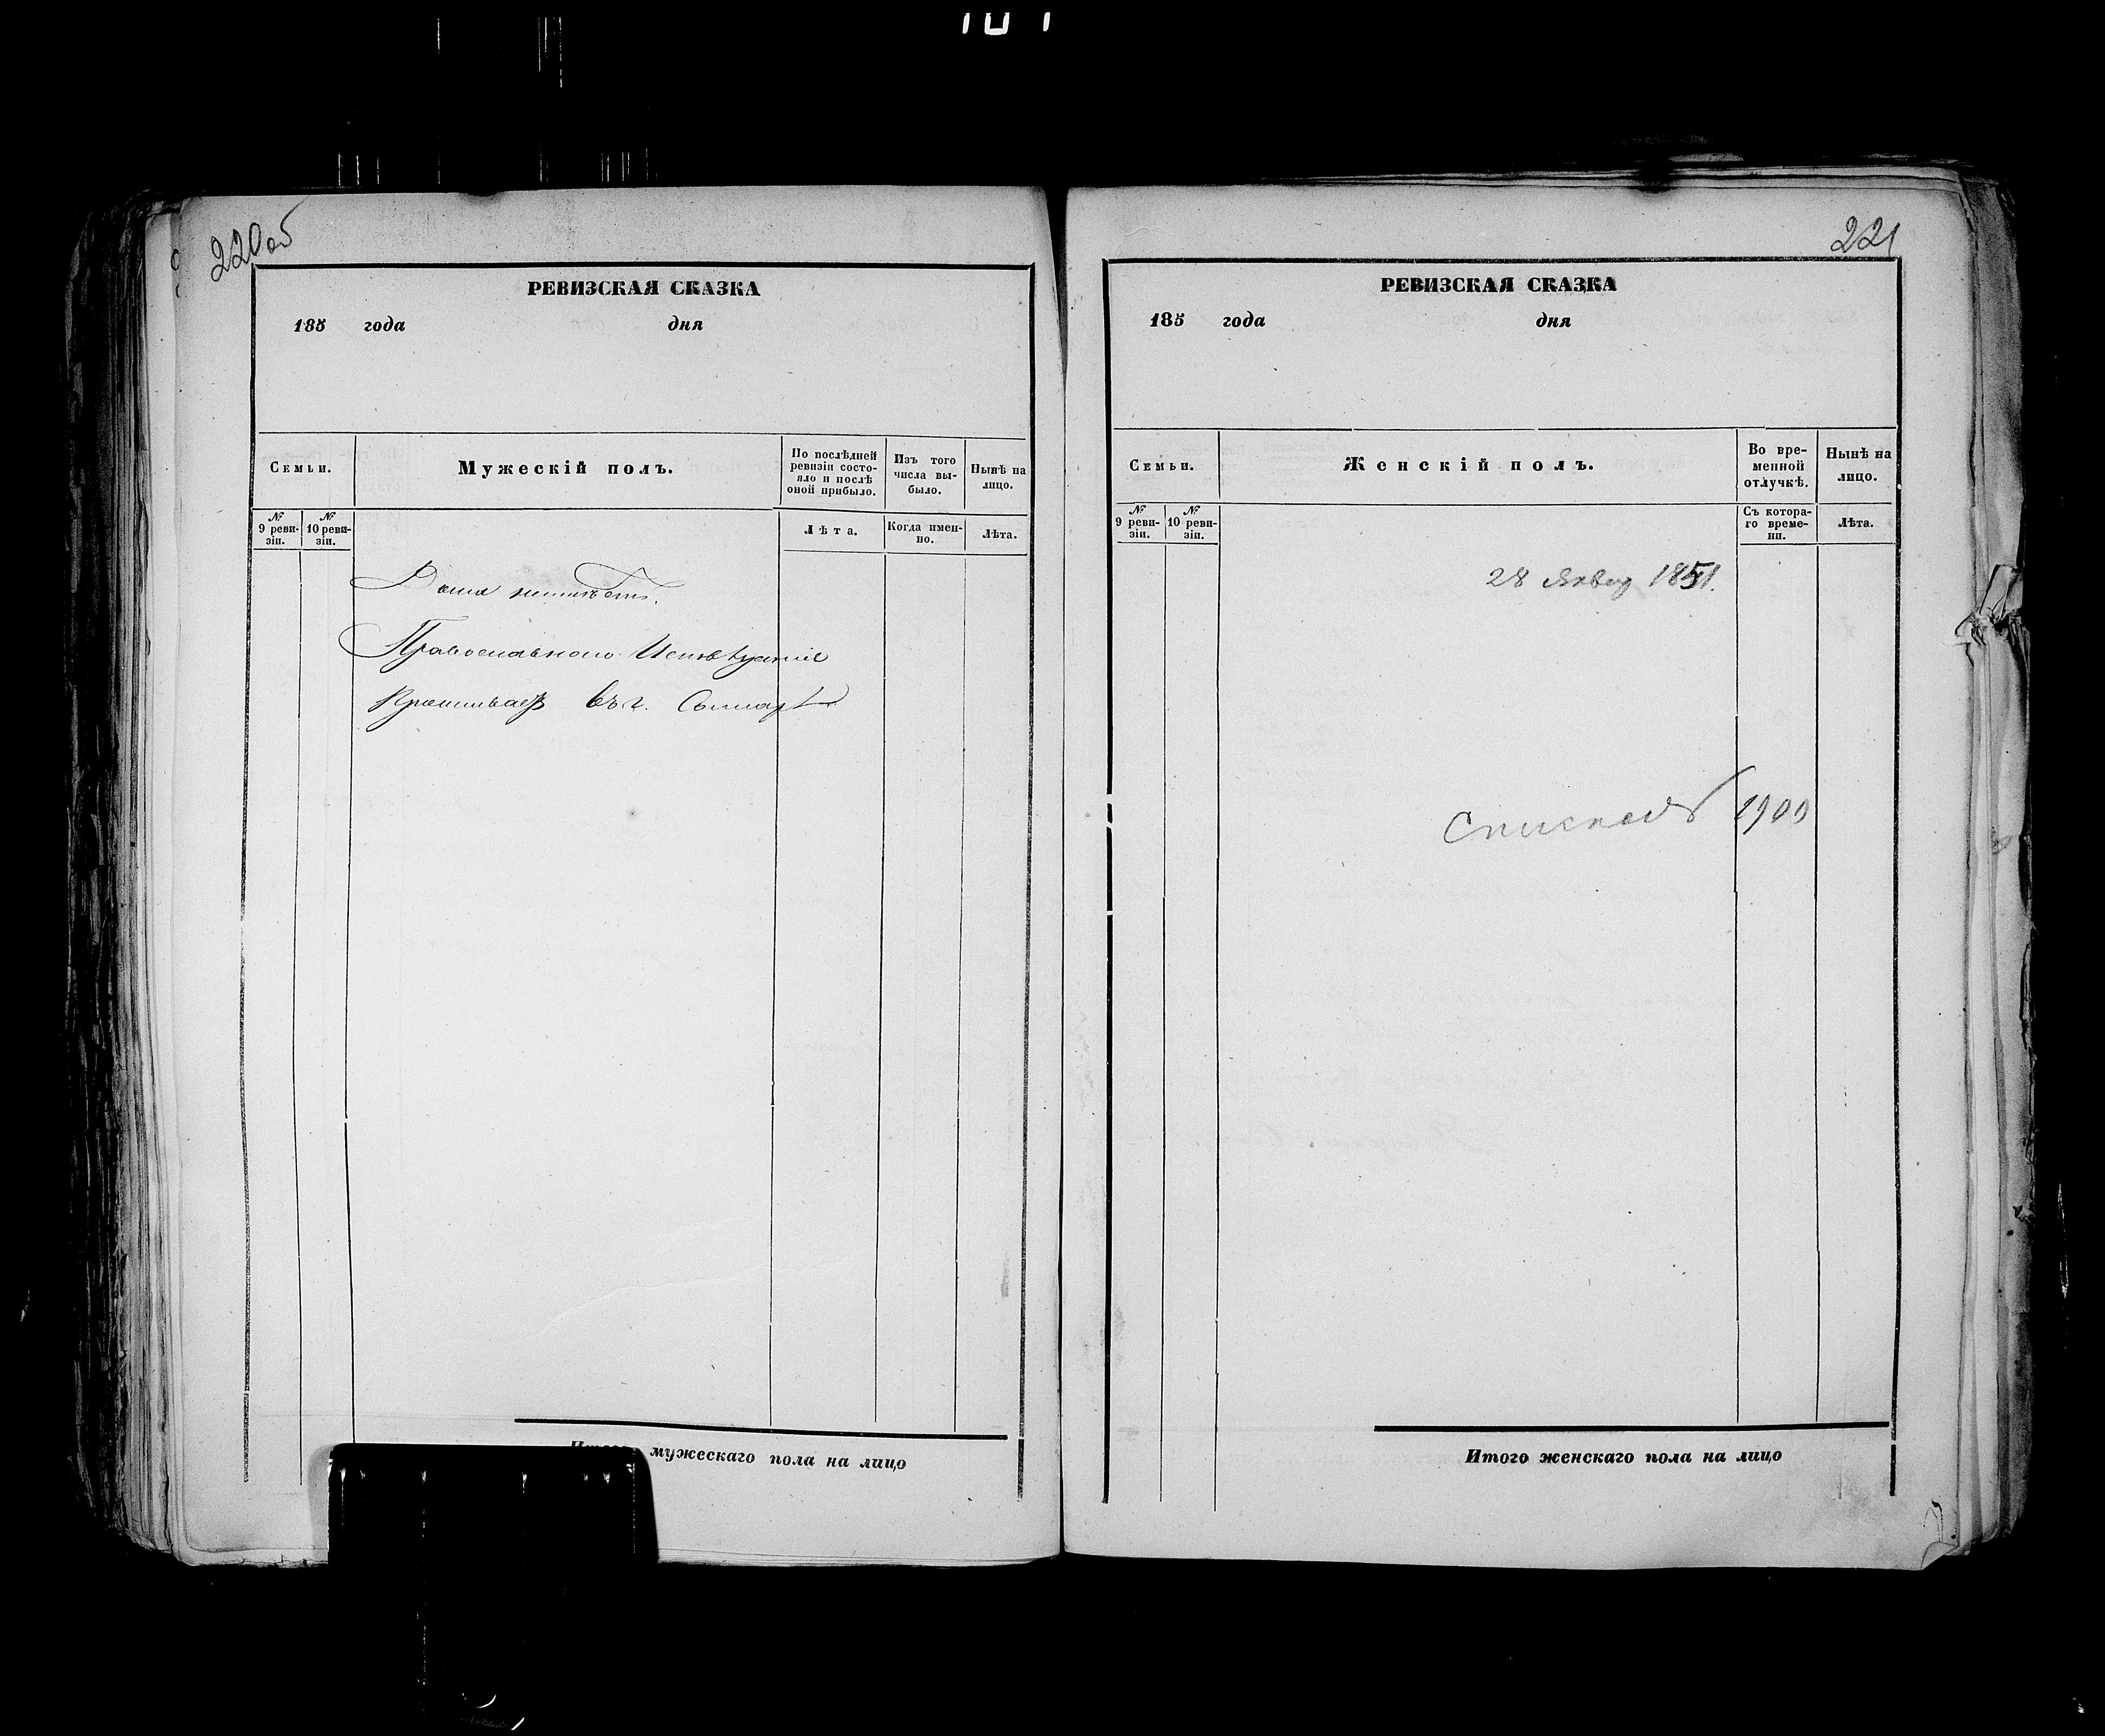 220об
РЕВИЗСКАЯ СКАЗКА
185 года дня
Семьи.
Мужескій полъ.
По послѣдней ревизіи состояло и послѣ оной прибыло.
Изъ того числа выбыло.
Нынѣ на лицо.
№ 9 ревизіи.
№ 10 ревизіи.
Лѣта.
Когда именно.
Лѣта.
Дома неимѣетъ.
Православнаго Исповѣданія
Проживаетъ въ г.
мужескаго пола на лицо
221
РЕВИЗСКАЯ СКАЗКА
185 года дня
Семьи.
Женскій полъ.
Во временной отлучкѣ.
Нынѣ на лицо.
№ 9 ревизіи.
№ 10 ревизіи.
Съ котораго времени.
Лѣта.
28 Январ 1851.
1900
Итого женскаго пола на лицо